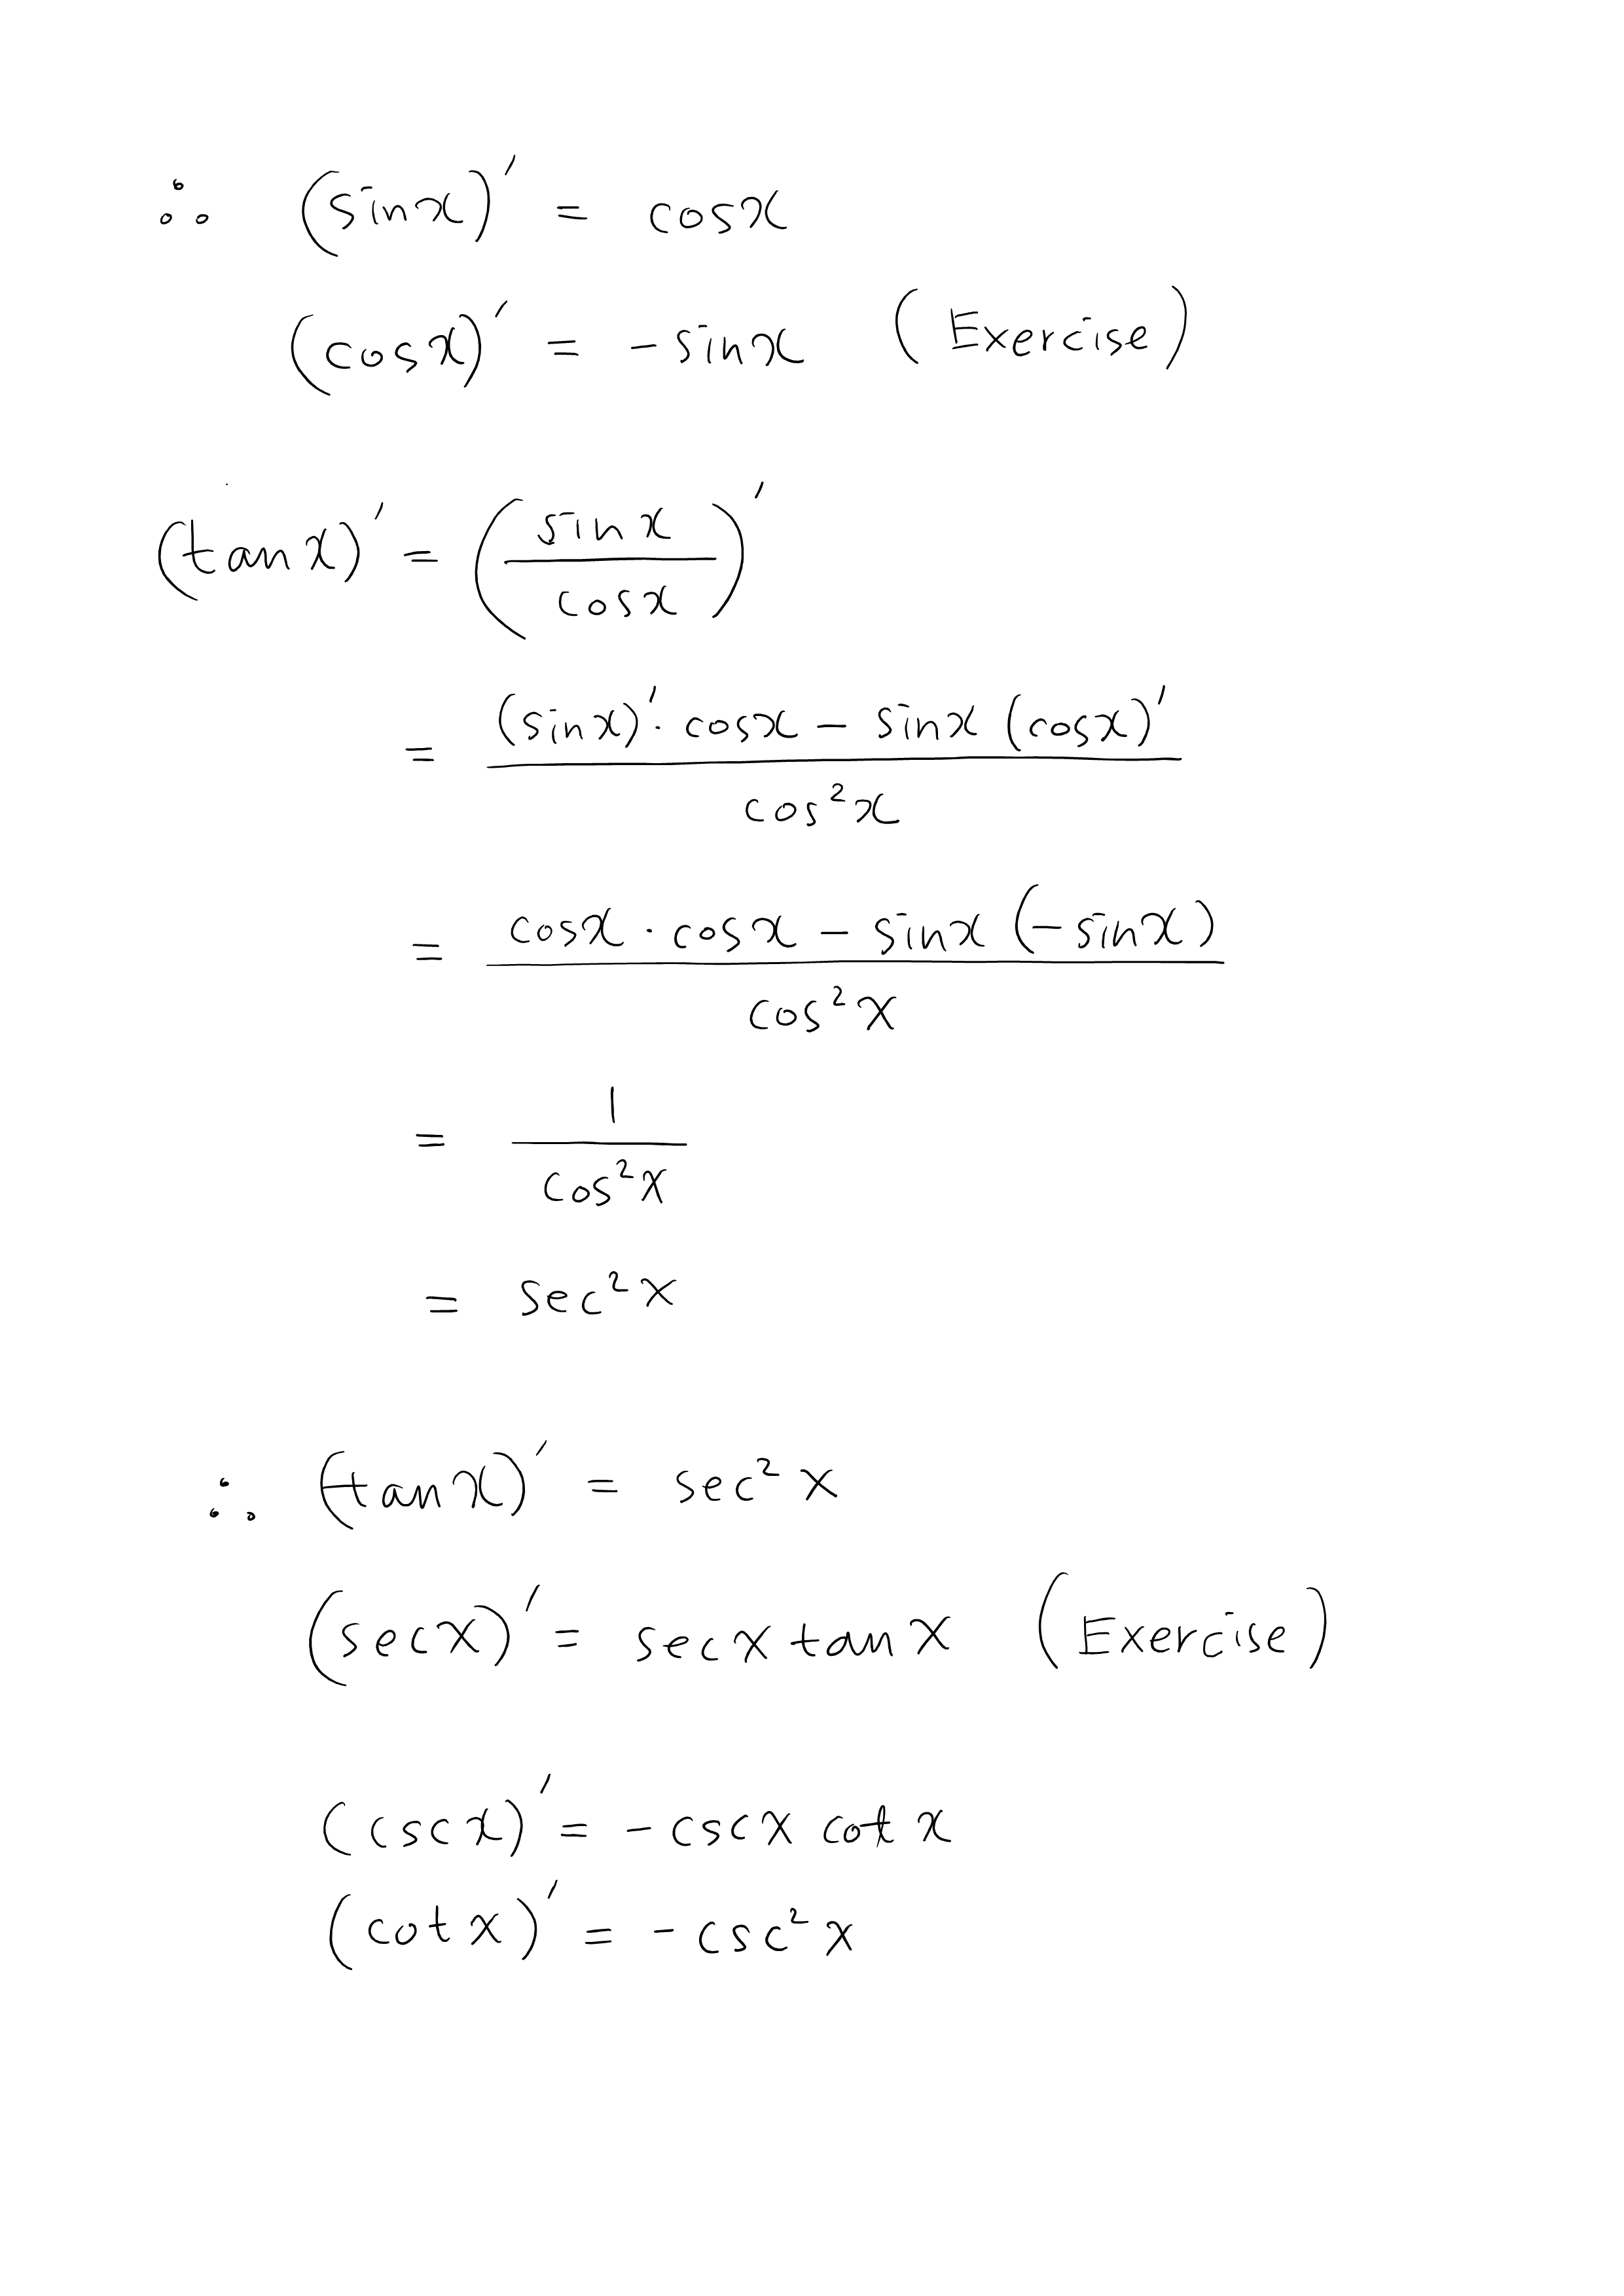 ∴ (sinx)′ = cosx
(cosx)′ = -sinx (Exercise)
(tanx)′ = (sinx / cosx)′
= ((sinx)′· cosx - sinx (cosx)′) / cos²x
= (cosx · cosx - sinx (-sinx)) / cos²x
= 1 / cos²x
= sec²x
∴ (tanx)′ = sec²x
(secx)′ = secx tanx (Exercise)
(cscx)′ = -cscx cotx
(cotx)′ = -csc²x